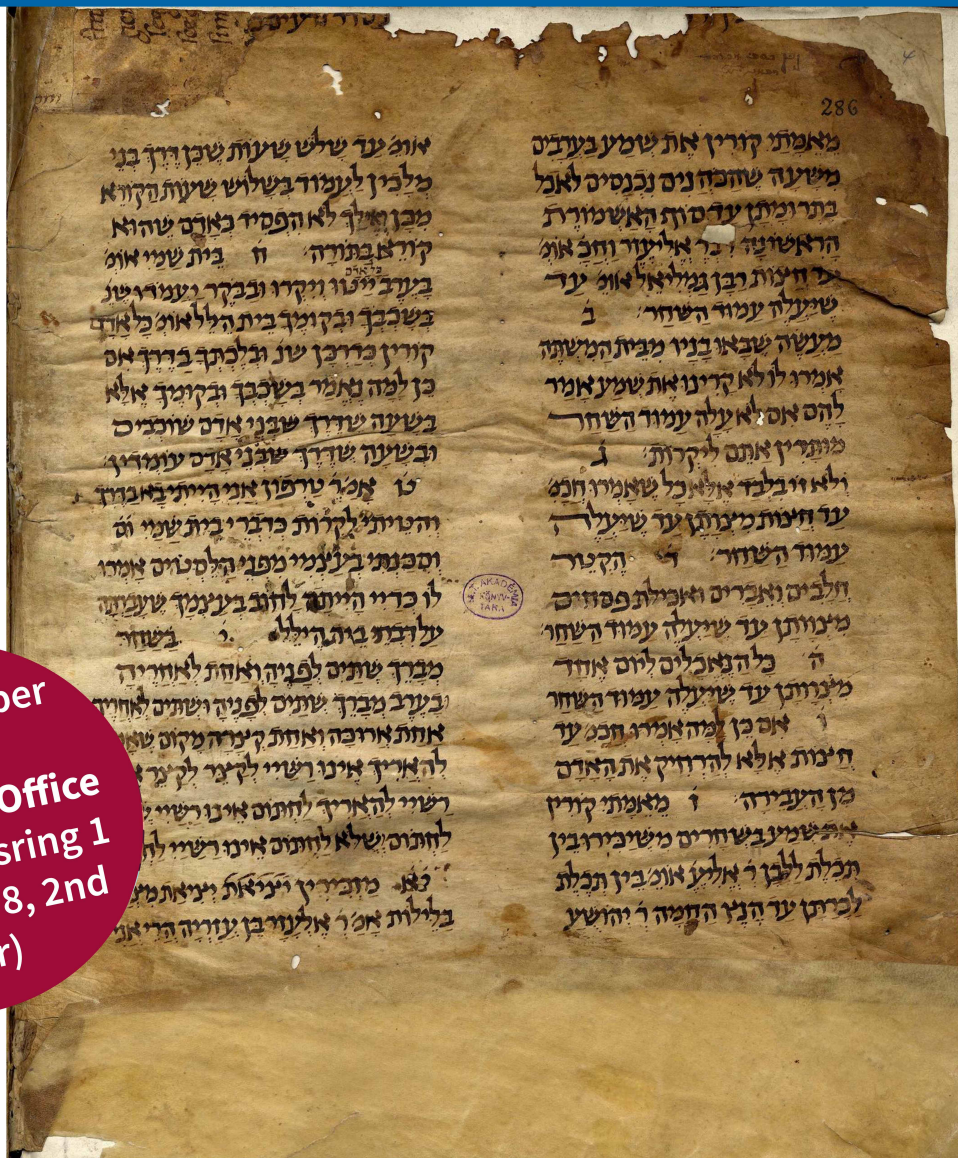 286
מאמתי קורין את שמע בערבים
משעה שהכהנים נכנסים לאכל
בתרומתן עד סוף האשמורת
הראשונה דבר אליעזר וחכ אומ׳
עד חצות רבן גמליאל אומ׳ עד
שיעלה עמוד השחר ב
מעשה שבאו בניו מבית המשתה
אמרו לו לא קרינו את שמע אמר
להם אם לא עלה עמוד השחר
מותרין אתם ליקרות ג
ולא זו בלבד אלא כל שאמרו חכמ׳
עד חצות מיצותן עד שיעלה
עמוד השחר ד הקטר
חלבים ואברים ואכילת פסחים
מיצוותן עד שיעלה עמוד השחר
ה כל הנאכלים ליום אחד
מיצוותן עד שיעלה עמוד השחר
ו אם כן למה אמרו חכמ׳ עד
חיצות אלא להרחיק את האדם
מן העבירה ז מאמתי קורין
את שמע בשחרים משיכירו בין
תכלת ללבן ר׳ אליעז׳ אומ׳ בין תכלת
לכרתן עד הנץ החמה ר׳ יהושע
אומ׳ עד שלש שעות שכן דרך בני
מלכין לעמוד בשלוש שעות הקורא
מכן ואילך לא הפסיד כאדם שהוא
קורא בתורה ח בית שמי אומ׳
כל אדם
בערב ייטו ויקרו ובבקר ועמדו שנ׳
בשכבך ובקומך בית הלל אומ׳ כל אדם
קורין כדרכן שנ׳ ובלכתך בדרך אם
כן למה נאמר בשכבך ובקומך אלא
בשעה שדרך שבני אדם שוכבים
ובשעה שדרך שבני אדם עומדין
ט אמ׳ ר׳ טרפון אני הייתי בא בדרך
והטיתי לקרות כדברי בית שמי
וסכנתי בעצמי מפני הלסטים אמרו
לו כדיי הייתה לחוב בעצמך שעברתה
על דברי בית הילל י בשחר
מברך שתים לפניה ואחת לאחריה
ובערב מברך שתים לפניה ושתים לאחריה
אחת ארוכה ואחת קיצרה מקום
להאריך אינו רשיי לקיצר לקיצר
רשיי להאריך לחתום אינו רשיי
לחתום שלא לחתום אינו רשיי
יא מזכירין יציאת
בלילות אמ׳ ר׳ אלעזר בן עזריה הרי אני
Office
sring 1
8, 2nd